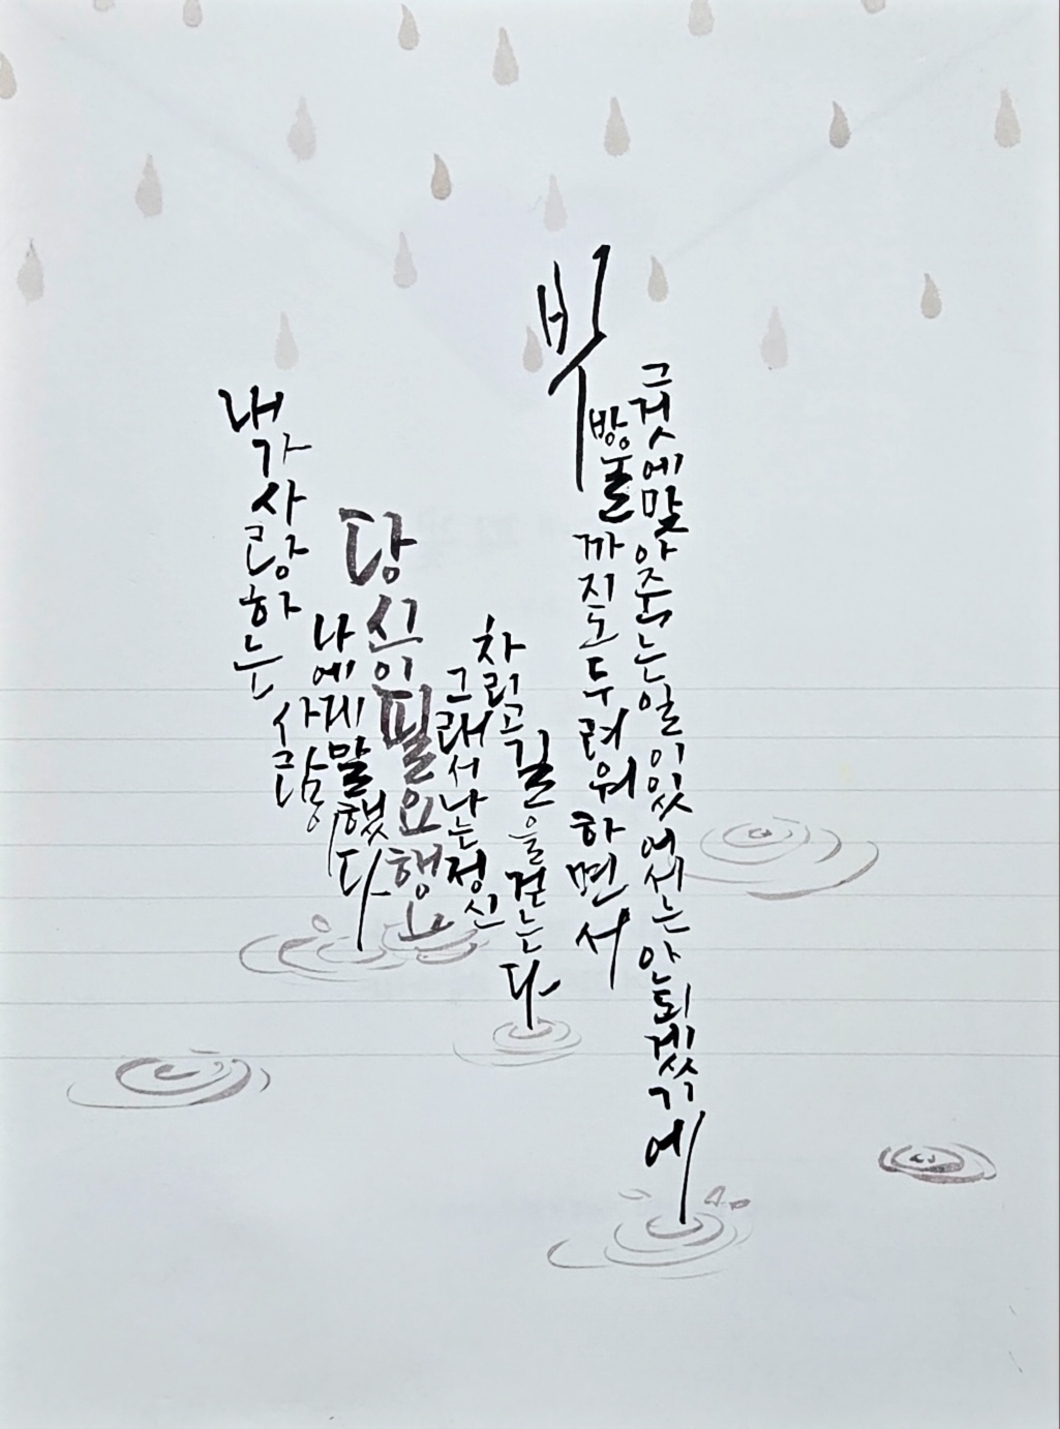 내가사랑하는
사람이
나에게말했다
당신이필요해요
그래서나는정신
차리고
길을걷는다
빗
방울까지도두려워하면서
그것에맞아죽는일이있어서는안되겠기
에